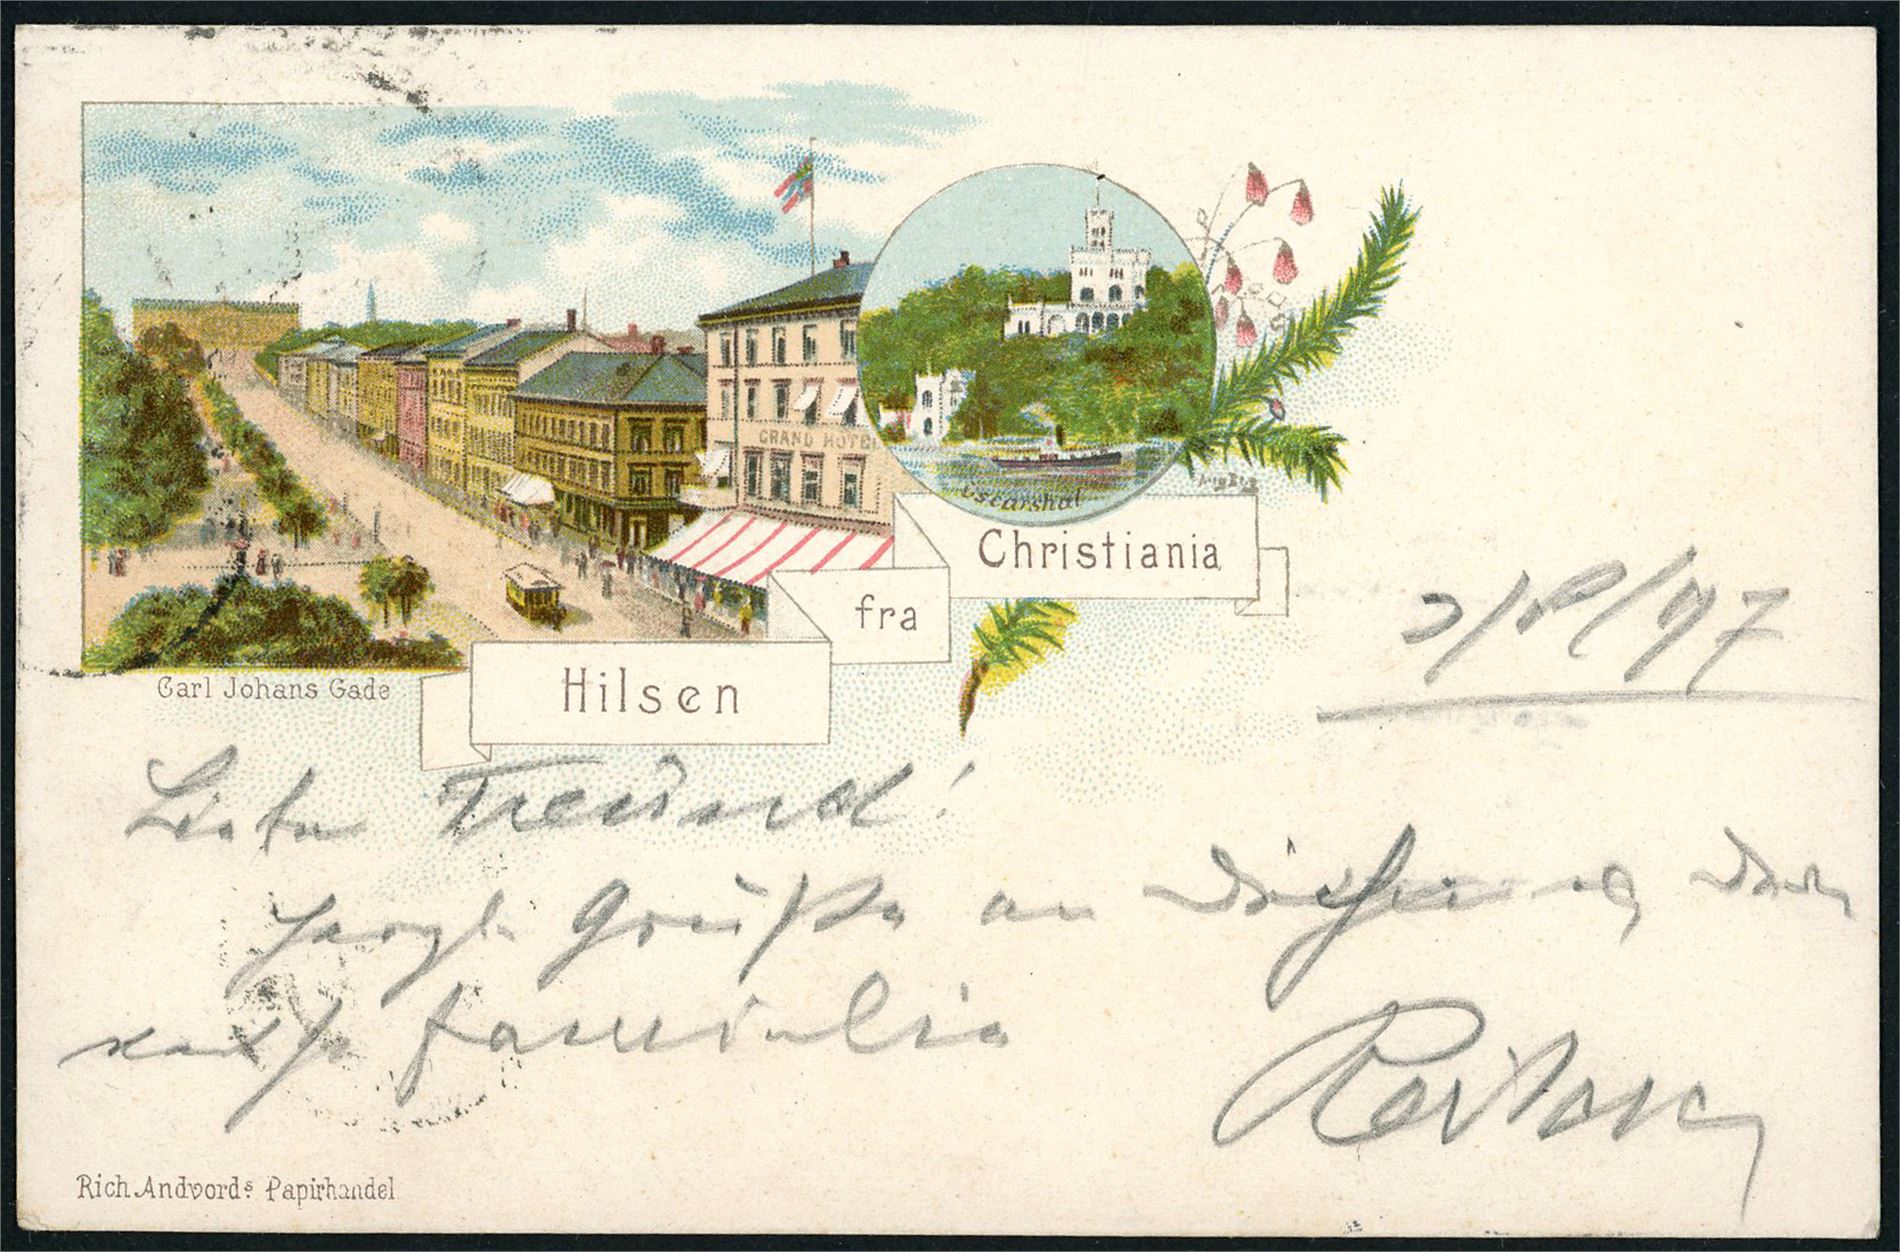 GRAND HOTEL
Oscarshal
Christiania
fra
Hilsen
Carl Johans Gade
2/8/97
Lieber Freund!
Herzl. Grüße an
Familie
Rich. Andvords Papirhandel